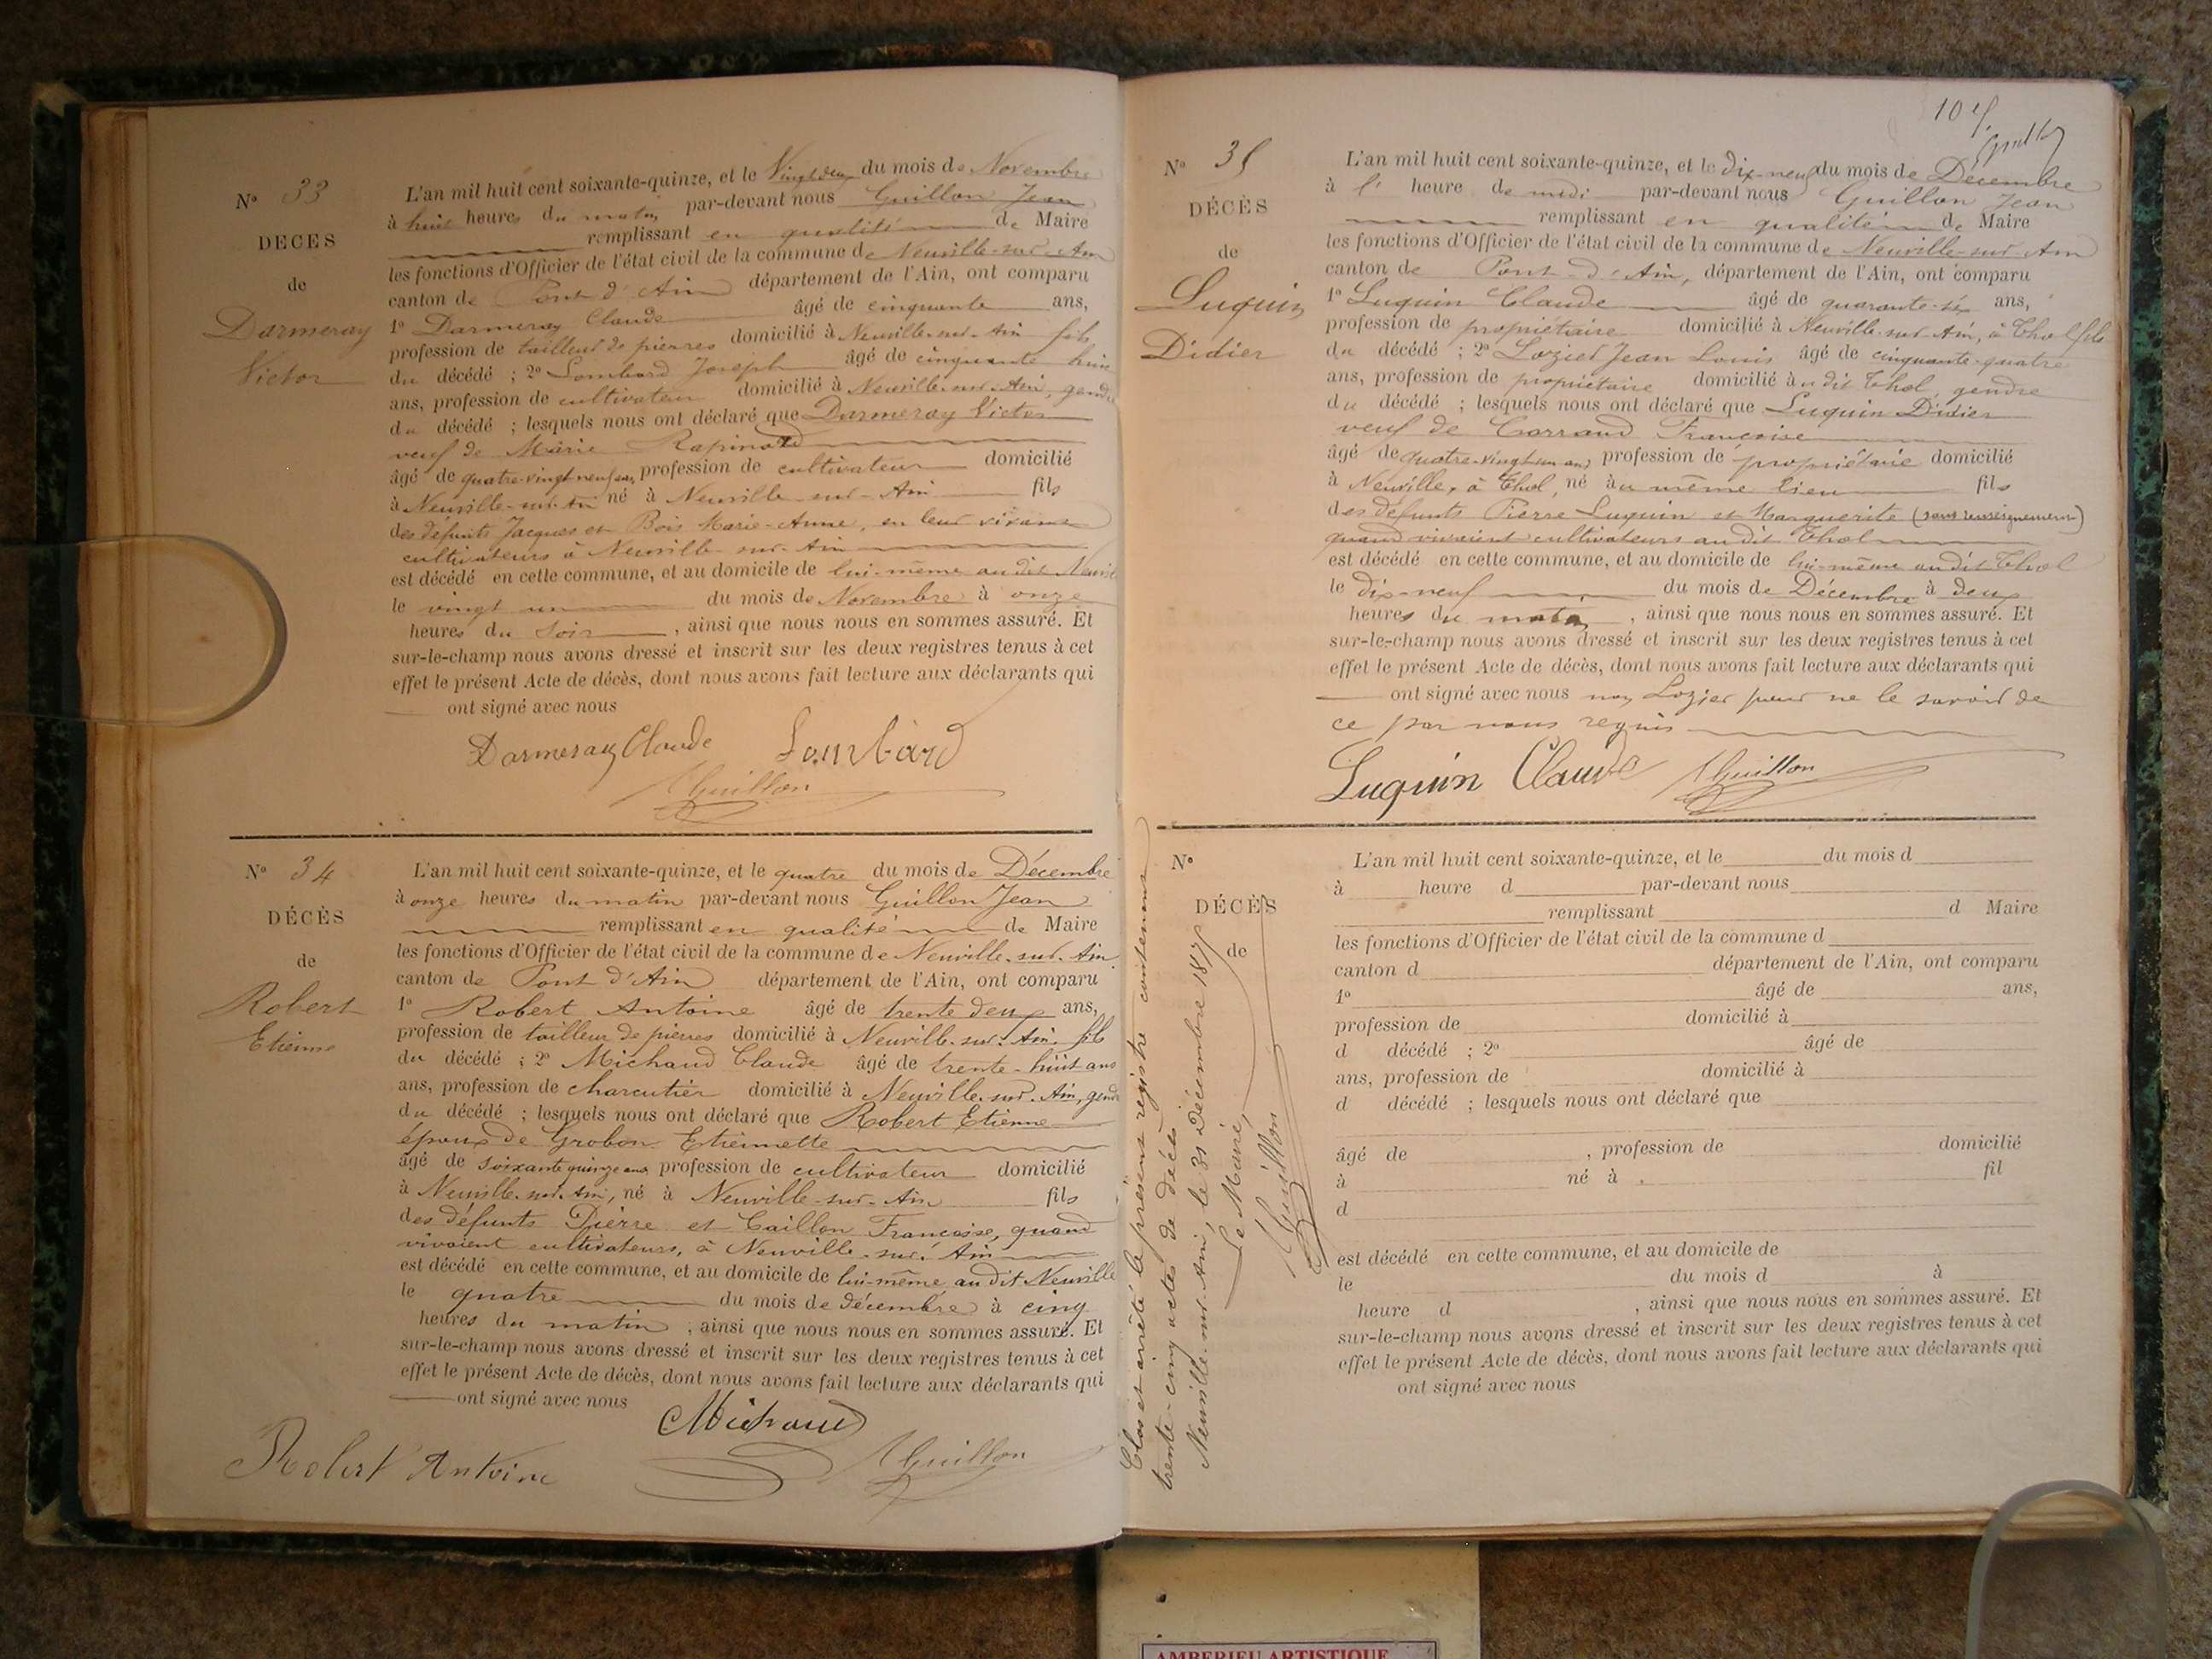 N° 33
DECES
de
Darmeray
Victor
L'an mil huit cent soixante-quinze, et le Vingt deux du mois de Novembre
à huit heures du matin par-devant nous Guillon Jean
remplissant en qualité de Maire
les fonctions d'Officier de l'état civil de la commune de Neuville-sur-Ain
canton de Pont d'Ain département de l'Ain, ont comparu
1° Darmeray Claude âgé de cinquante ans,
profession de tailleur de pierres domicilié à Neuville-sur-Ain fils
du décédé ; 2° Lombard Joseph âgé de cinquante huit
ans, profession de cultivateur domicilié à Neuville-sur-Ain, gendre
du décédé ; lesquels nous ont déclaré que Darmeray Victor
veuf de Marie Rapinard
âgé de quatre-vingt neuf ans, profession de cultivateur domicilié
à Neuville-sur-Ain né à Neuville-sur-Ain fils
des défunts Jacques et Bois Marie-Anne, en leur vivant
cultivateurs à Neuville-sur-Ain
est décédé en cette commune, et au domicile de lui-même au dit Neuville
le vingt un du mois de Novembre à onze
heures du soir, ainsi que nous nous en sommes assuré. Et
sur-le-champ nous avons dressé et inscrit sur les deux registres tenus à cet
effet le présent Acte de décès, dont nous avons fait lecture aux déclarants qui
ont signé avec nous
Darmeray Claude Lombard
Guillon
N° 34
DÉCÈS
de
Robert
Etienne
L'an mil huit cent soixante-quinze, et le quatre du mois de Décembre
à onze heures du matin par-devant nous Guillon Jean
remplissant en qualité de Maire
les fonctions d'Officier de l'état civil de la commune de Neuville-sur-Ain
canton de Pont d'Ain département de l'Ain, ont comparu
1° Robert Antoine âgé de trente deux ans,
profession de tailleur de pierres domicilié à Neuville-sur-Ain fils
du décédé ; 2° Michaud Claude âgé de trente-huit ans
ans, profession de charcutier domicilié à Neuville-sur-Ain, gendre
du décédé ; lesquels nous ont déclaré que Robert Etienne
époux de Grobon Etiennette
âgé de soixante quinze ans profession de cultivateur domicilié
à Neuville-sur-Ain, né à Neuville-sur-Ain fils
des défunts Pierre et Caillon Françoise, quand
vivaient cultivateurs, à Neuville-sur-Ain
est décédé en cette commune, et au domicile de lui-même au dit Neuville
le quatre du mois de décembre à cinq
heures du matin, ainsi que nous nous en sommes assuré. Et
sur-le-champ nous avons dressé et inscrit sur les deux registres tenus à cet
effet le présent Acte de décès, dont nous avons fait lecture aux déclarants qui
ont signé avec nous
Michaud
Robert Antoine Guillon
N° 35
DÉCÈS
de
Luquin
Didier
L'an mil huit cent soixante-quinze, et le dix-neuf du mois de Décembre
à l' heure de midi par-devant nous Guillon Jean
remplissant en qualité de Maire
les fonctions d'Officier de l'état civil de la commune de Neuville-sur-Ain
canton de Pont-d'Ain, département de l'Ain, ont comparu
1° Luquin Claude âgé de quarante-six ans,
profession de propriétaire domicilié à Neuville-sur-Ain, à Thol fils
du décédé ; 2° Lozier Jean Louis âgé de cinquante-quatre
ans, profession de propriétaire domicilié au dit Thol, gendre
du décédé ; lesquels nous ont déclaré que Luquin Didier
veuf de Carraud Françoise
âgé de quatre-vingt un ans profession de propriétaire domicilié
à Neuville, à Thol, né au même lieu fils
des défunts Pierre Luquin et Marguerite (sans renseignements)
quand vivaient cultivateurs au dit Thol
est décédé en cette commune, et au domicile de lui-même au dit Thol
le dix-neuf du mois de Décembre à deux
heures du matin, ainsi que nous nous en sommes assuré. Et
sur-le-champ nous avons dressé et inscrit sur les deux registres tenus à cet
effet le présent Acte de décès, dont nous avons fait lecture aux déclarants qui
ont signé avec nous non Lozier pour ne le savoir de
ce par nous requis
Luquin Claude Guillon
N°
DÉCÈS
de
L'an mil huit cent soixante-quinze, et le du mois d
à heure d par-devant nous
remplissant d Maire
les fonctions d'Officier de l'état civil de la commune d
canton d département de l'Ain, ont comparu
1° âgé de ans,
profession de domicilié à
d décédé ; 2° âgé de
ans, profession de domicilié à
d décédé ; lesquels nous ont déclaré que
âgé de , profession de domicilié
à né à fil
d
est décédé en cette commune, et au domicile de
le du mois d à
heure d , ainsi que nous nous en sommes assuré. Et
sur-le-champ nous avons dressé et inscrit sur les deux registres tenus à cet
effet le présent Acte de décès, dont nous avons fait lecture aux déclarants qui
ont signé avec nous
Clos et arrêté le présent registre contenant
trente-cinq actes de décès
Neuville-sur-Ain, le 31 Décembre 1875
Le Maire,
Guillon
AMBERIEU ARTISTIQUE